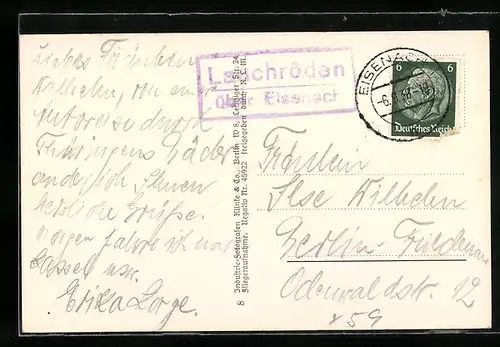 Liebes Fräulein
Wilhelm, von einer
Autoreise durch
Thüringens Wälder
sende ich Ihnen
herzliche Grüße.
Morgen fahre ich nach
Kassel usw.
Erika Lorge.
Lauchröden
über Eisenach
8 Industrie-Fotografen Klinke & Co., Berlin W 8, Leipziger Str. 24
Fliegeraufnahme. Negativ Nr. 45922 freigegeben durch R. L. M.
EISENACH
6 6
Deutsches Reich
Fräulein
Ilse Wilhelm
Berlin-Friedenau
Odenwaldstr. 12